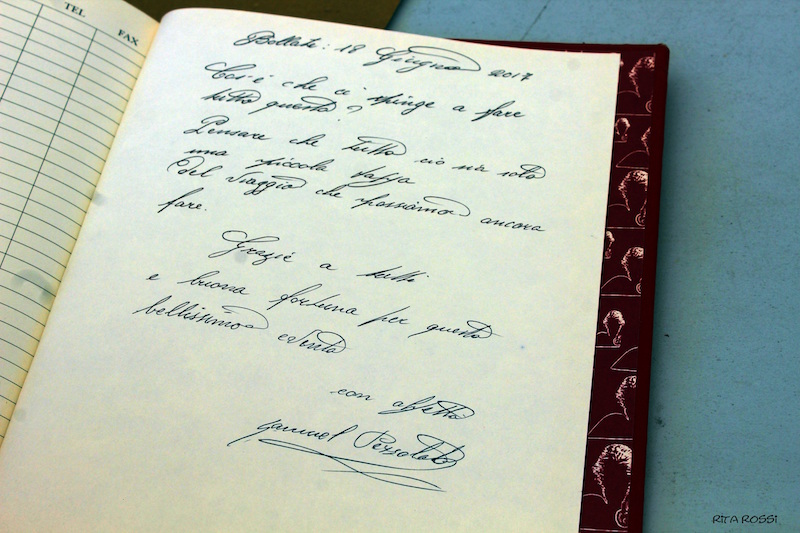 TEL
FAX
Bollate: 18 Giugno 2017
Cos'è che ci spinge a fare
tutto questo?
Pensare che tutto ciò sia solo
una piccola tappa
del viaggio che possiamo ancora
fare.
Grazie a tutti
e buona fortuna per questo
bellissimo evento
con affetto
Samuel
RITA ROSSI